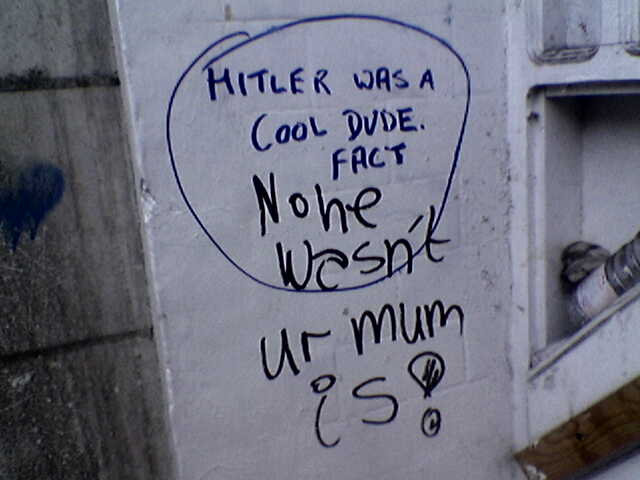 HITLER WAS A
COOL DUDE.
FACT
Nohe
Wasn't
ur mum
is!